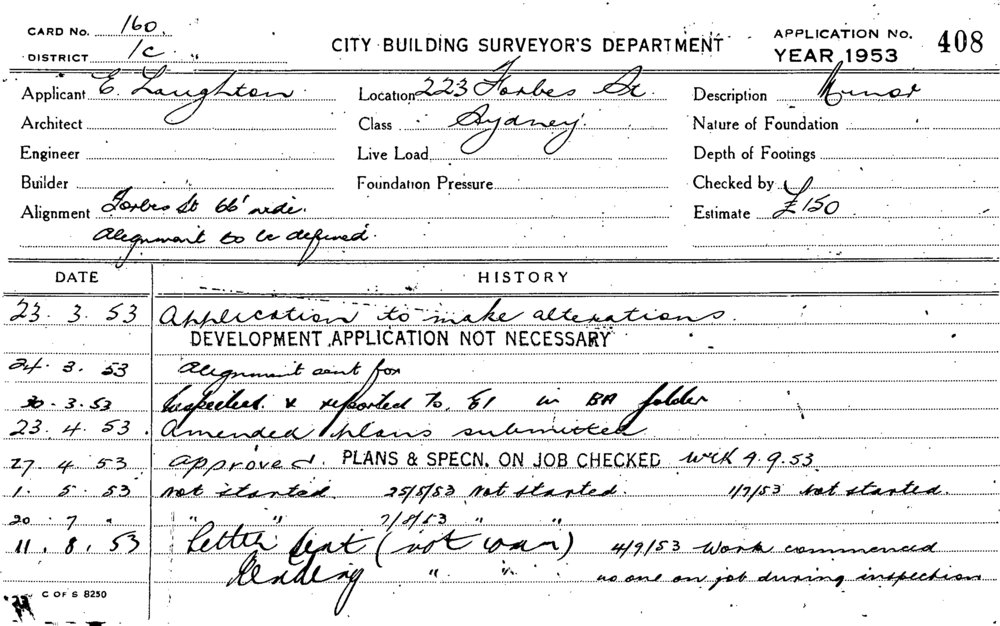 CARD No. 160.
DISTRICT 1C "
CITY BUILDING SURVEYOR'S DEPARTMENT
APPLICATION No. 408
YEAR 1953
Applicant E. Laughton Location 223 Forbes St. Description Minor
Architect Class Sydney. Nature of Foundation
Engineer Live Load Depth of Footings
Builder Foundation Pressure Checked by
Alignment Forbes St 66' wide. Estimate £150
Alignment to be defined.
DATE HISTORY
23. 3. 53 Application to make alterations.
DEVELOPMENT APPLICATION NOT NECESSARY
24. 3. 53 Alignment sent for
30. 3. 53 Inspected & reported to. E1 in BA folder
23. 4. 53. Amended plans submitted
27. 4 53 Approved. PLANS & SPECN. ON JOB CHECKED WtK 9.9.53.
1. 5. 53 Not started. 25/5/53 Not started. 1/7/53 Not started.
20. 7 " " " 7/8/53 " "
11. 8. 53 Letter sent (not war) 4/9/53 Work commenced
" " no one on job during inspection
C OF S 8250